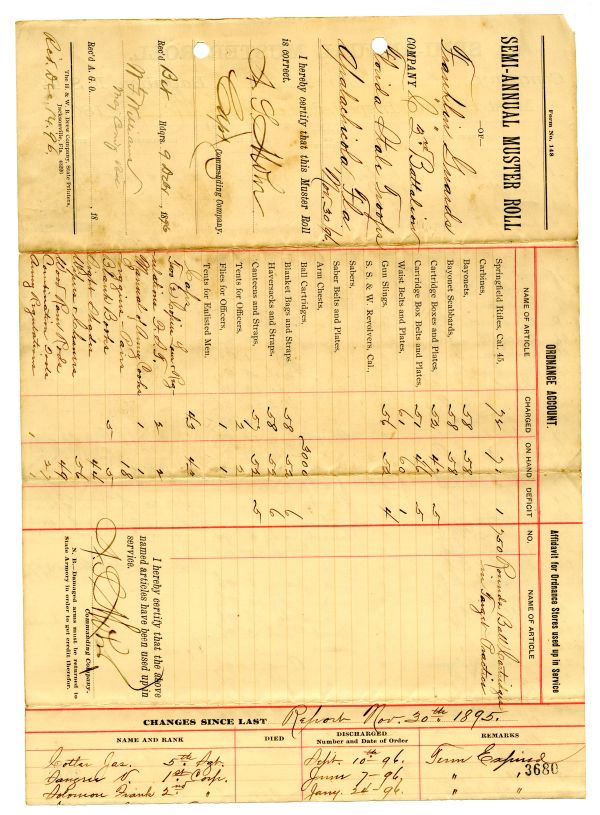 Form No. 148
SEMI-ANNUAL MUSTER ROLL
—OF—
Franklin Guards
COMPANY C 2nd Battalion
Florida State Troops
Apalachicola Fla
Nov. 30 96
I hereby certify that this Muster Roll
is correct.
Capt
Commanding Company.
Rec'd Bat Hdqrs. 9 Dec 1896
Rec'd A. G. O. 18
The H. & W. B. Drew Company, State Printers,
Jacksonville, Fla.
Rec'd Dec 14, 96.
ORDNANCE ACCOUNT.
NAME OF ARTICLE CHARGED ON HAND DEFICIT
Springfield Rifles, Cal. 45, 72 71 1
Carbines,
Bayonets, 58 58
Bayonet Scabbards, 58 58
Cartridge Boxes and Plates, 52 47 5
Cartridge Box Belts and Plates, 51 46 5
Waist Belts and Plates, 61 60 1
Gun Slings, 56 52 4
S. S. & W. Revolvers, Cal.,
Sabers,
Saber Belts and Plates,
Arm Chests,
Ball Cartridges, 3000
Blanket Bags and Straps 58 52 6
Haversacks and Straps, 58 52 6
Canteens and Straps, 57 52 5
Tents for Officers, 2 2
Flies for Officers, 1 1
Tents for Enlisted Men,
Caps
2 2
Manual of Army Cooks 1 1
18
Blank Books 5 5
44
56
Wood Rods 49
Combination Tools 27
Army Regulations 1
Affidavit for Ordnance Stores used up in Service
NO. NAME OF ARTICLE
750 Rounds Ball Cartridges
in Target Practice
I hereby certify that the above
named articles have been used up in
service.
Commanding Company.
N. B.—Damaged arms must be returned to
State Armory in order to get credit therefor.
CHANGES SINCE LAST Report Nov. 30th 1895.
NAME AND RANK DIED DISCHARGED Number and Date of Order REMARKS
Cotter Jas. 5th Sgt. Sept. 10th 96. Term Expired
V. 1st Corp. June 7-96, " "
3680
Solomon Frank 2nd " Jany. 24-96. " "